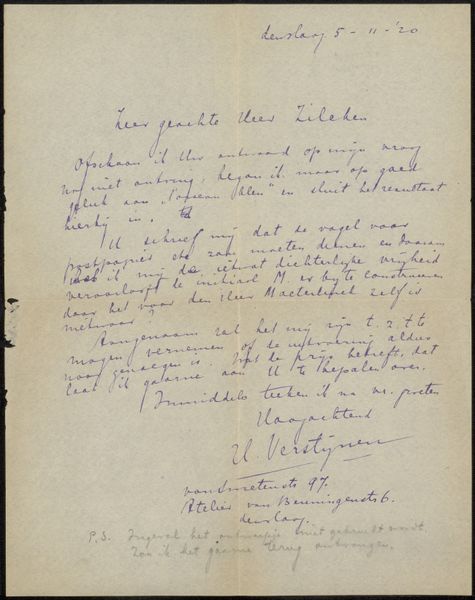 den Haag 5-11-'20
Zeer geachte Heer Zilcken
Ofschoon ik Uw antwoord op mijn vraag
nog niet ontving, begon ik maar op goed
geluk aan "l'oiseau bleu" en sluit het resultaat
hierbij in.
U schreef mij dat de vogel voor
postpapier etc zou moeten dienen en daarom
ik mij de ietwat dichterlijke vrijheid
veroorloofd de initiaal M. er bij te construeeren
daar het voor den Heer Maeterlinck zelf is
nietwaar?
Aangenaam zal het mij zijn t.z.t te
mogen vernemen of de uitvoering aldus
naar genoegen is. Wat de prijs betreft, dat
laat ik gaarne aan U te bepalen over.
Inmiddels teeken ik na vr. groeten
Hoogachtend
H. Verstijnen
van Smetenstr 97.
Atelier van Beuningenstr 6.
den Haag.
P.S. Ingeval het ontwerpje niet gebruikt wordt.
Zou ik het gaarne terug ontvangen.